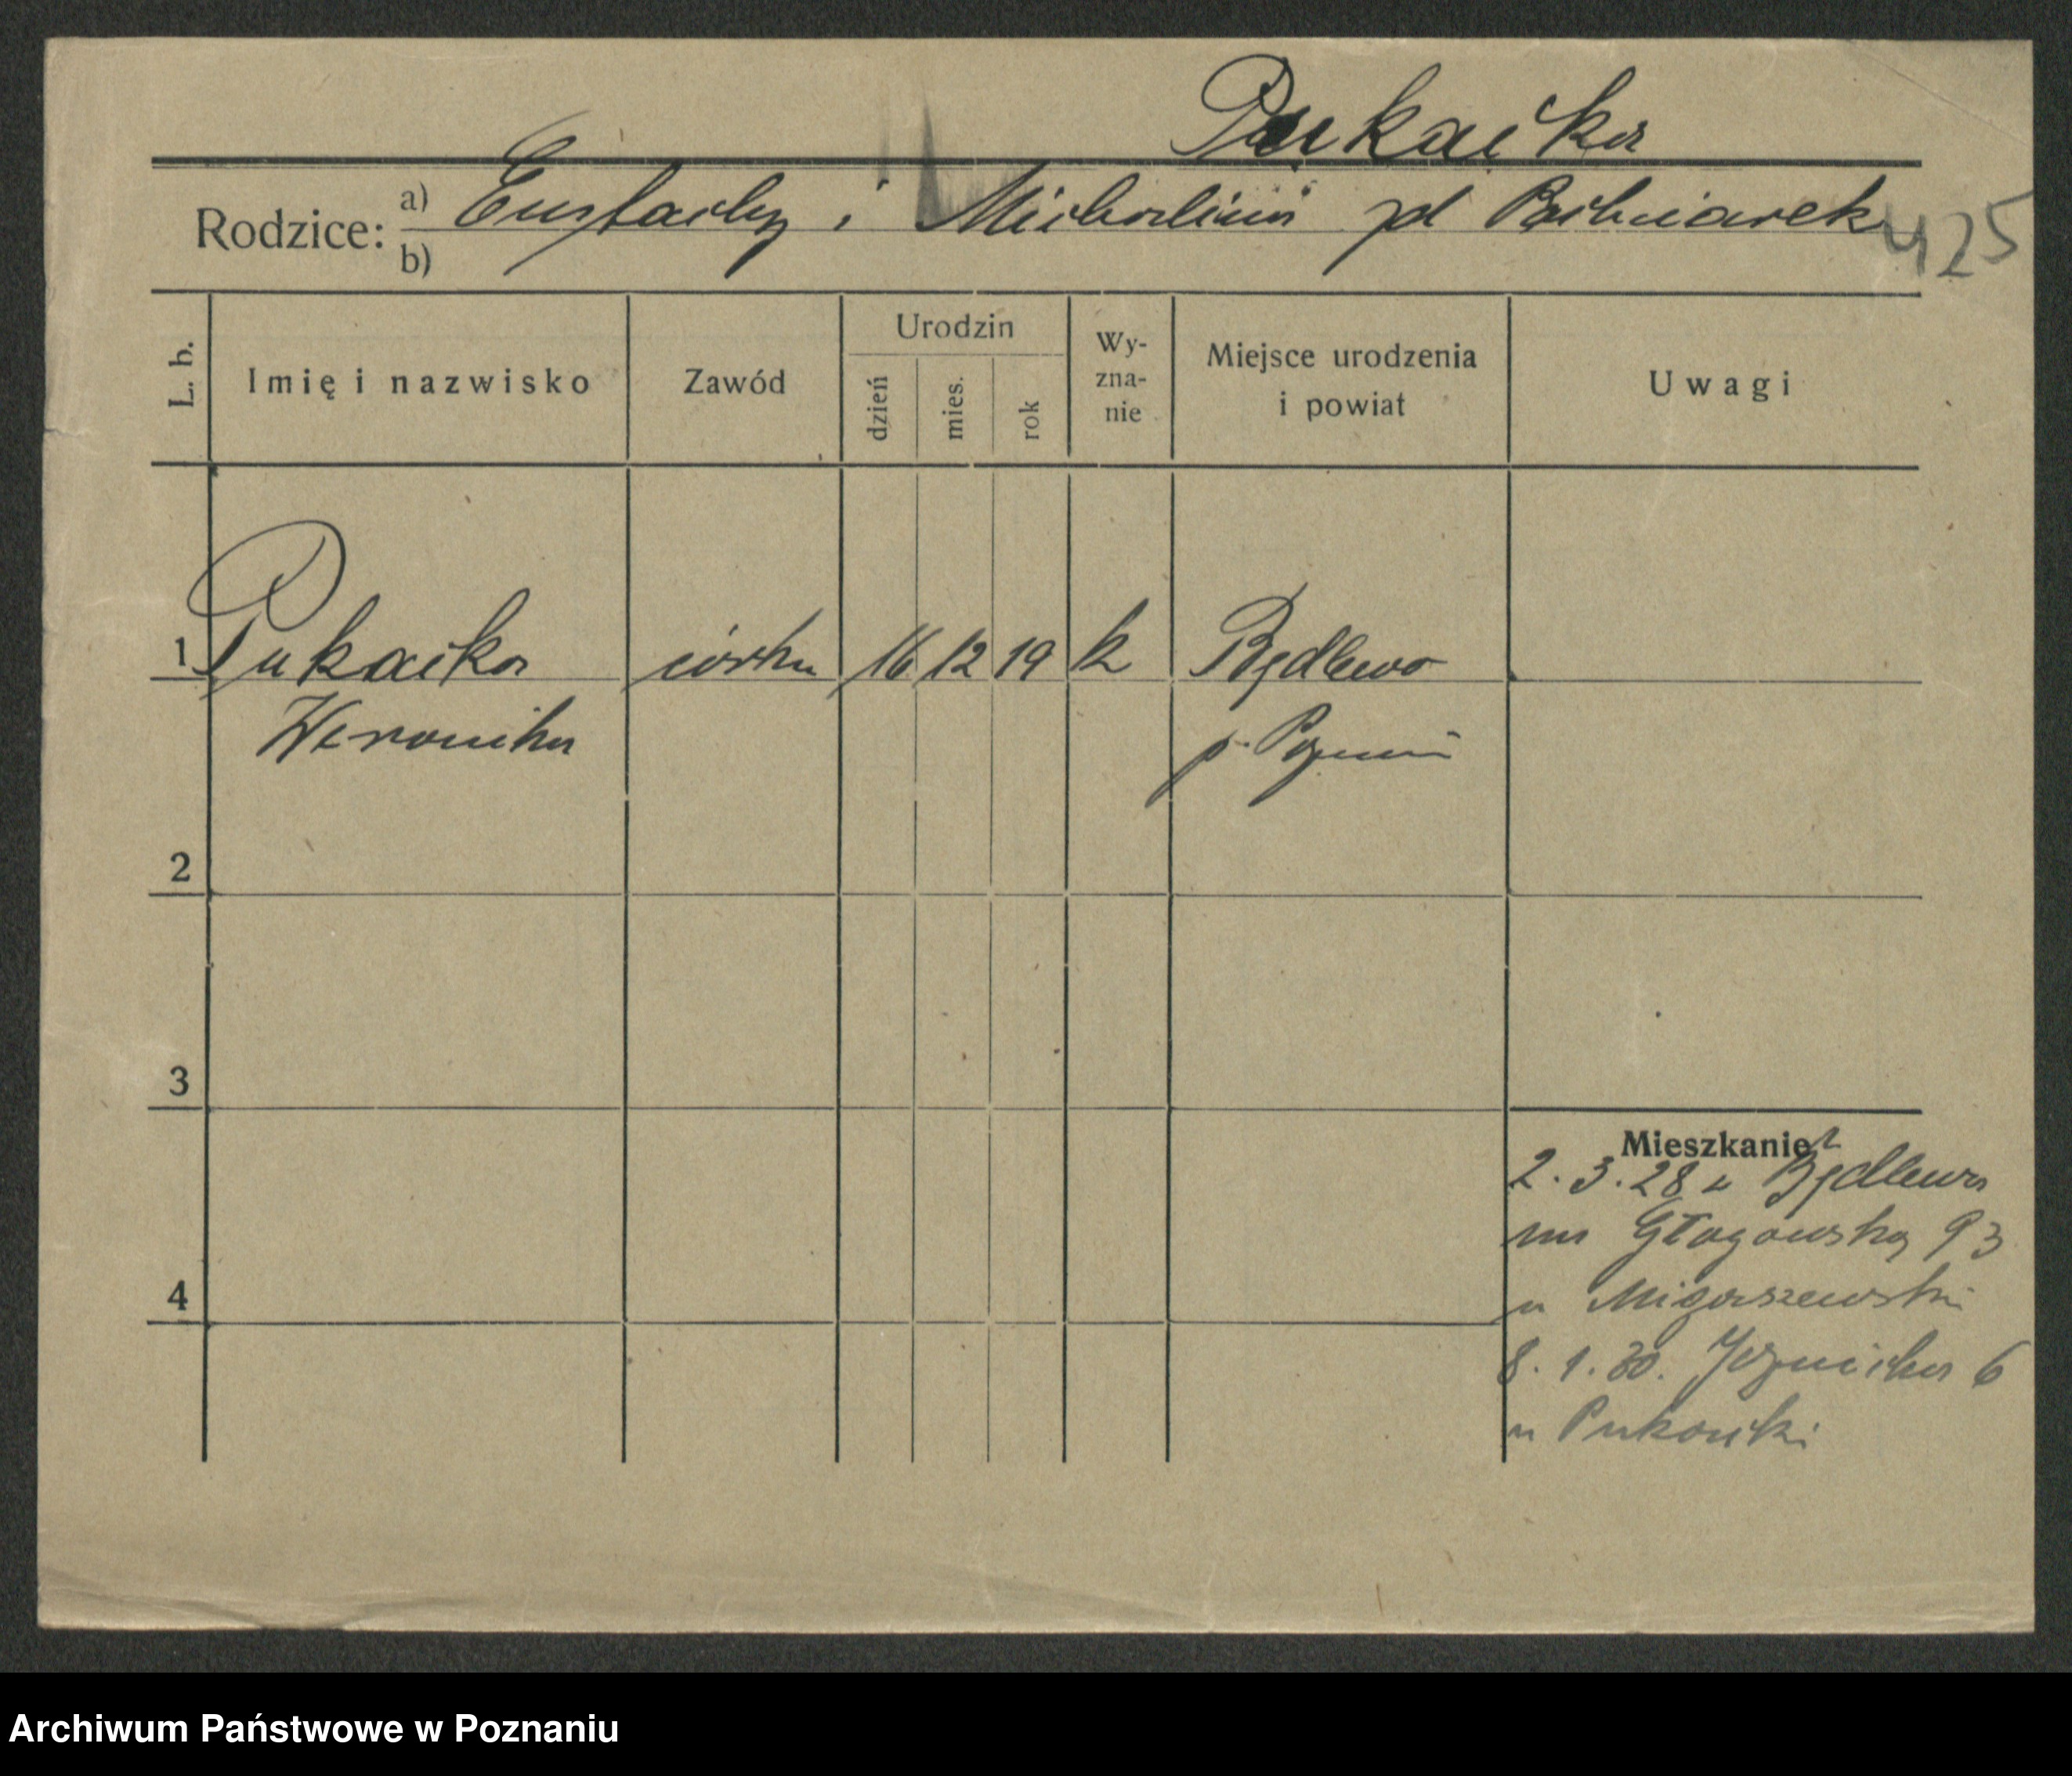 Pukacka
Rodzice: a) Eustachy i Michalina zd Bednarek
b)
425
L. b.
Imię i nazwisko
Zawód
Urodzin
dzień
mies.
rok
Wy-
zna-
nie
Miejsce urodzenia
i powiat
Uwagi
1 Pukacka córka 16 12 19 k Będlewo
Weronika p. Poznań
2
3
4
Mieszkanie
2.3.28 z Będlewa
na Głogowską 93
u
8.1.30. 6
u Pukacki
Archiwum Państwowe w Poznaniu